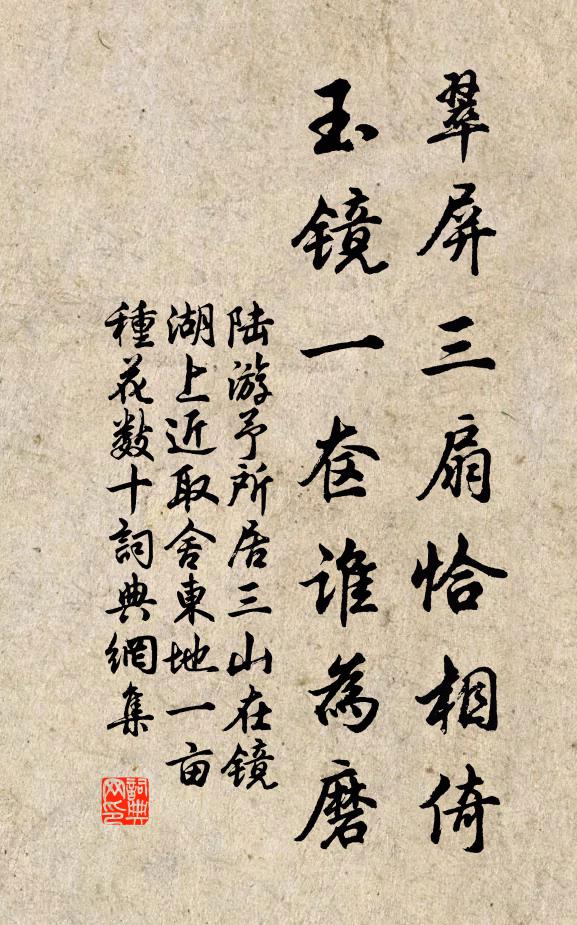 翠屏三扇恰相倚
玉镜一奁谁為磨
陆游予所居三山在镜
湖上近取舍東地一亩
種花数十詞典網集
詞典网印